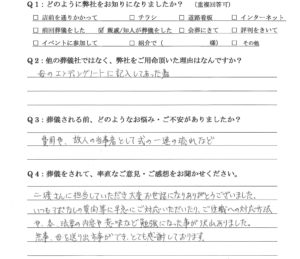 Q1：どのように弊社をお知りになりましたか？（重複回答可）
□ 店前を通りかかって □ チラシ □ 道路看板 □ インターネット
□ 前回葬儀をした ☑ 親戚/知人が葬儀をした □ 会葬にきて □ 評判をきいて
□ イベントに参加して □ 紹介で（ 様） □ その他
Q2：他の葬儀社ではなく、弊社をご用命頂いた理由はなんですか？
母のエンディングノートに記入してあった為
Q3：葬儀される前、どのようなお悩み・ご不安がありましたか？
費用や、故人の当事者として式の一連の流れなど
Q4：葬儀をされて、率直なご意見・ご感想をお聞かせください。
様さんに担当していただき大変お世話になりありがとうございました。
いつもすぐなしの質問等に早急にご対応いただいたり、ご住職への対応方法
や、各、法要の内容や意味など勉強になった事が沢山ありました。
無事、母を送り出す事ができ、とても感謝しております。